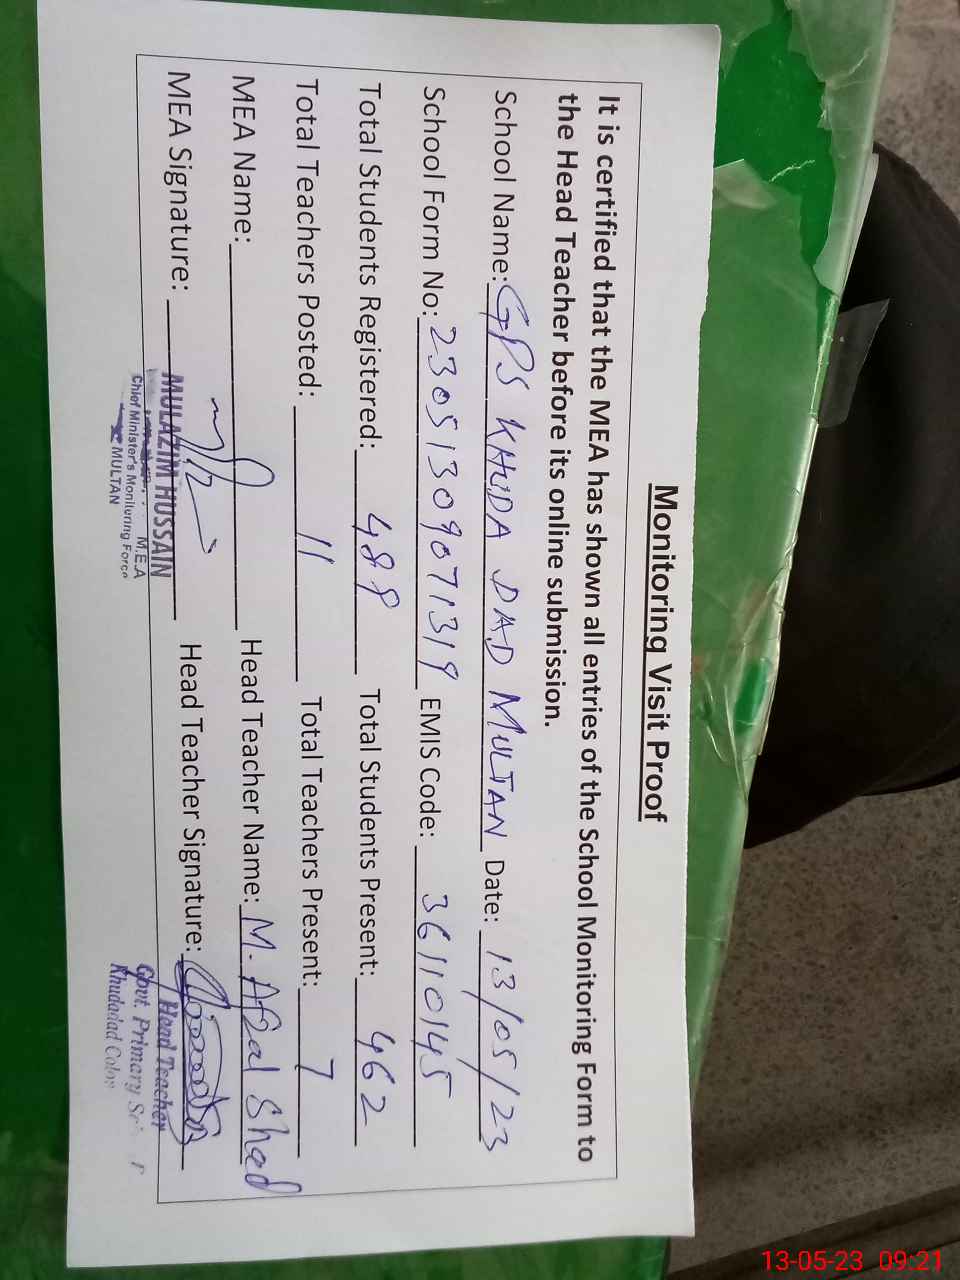 Monitoring Visit Proof
It is certified that the MEA has shown all entries of the School Monitoring Form to
the Head Teacher before its online submission.
School Name: GPS KHUDA DAD MULTAN Date: 13/05/23
School Form No: 23051309071319 EMIS Code: 36110145
Total Students Registered: 488 Total Students Present: 462
Total Teachers Posted: 11 Total Teachers Present: 7
MEA Name: Head Teacher Name: M. Afzal Shad
MEA Signature: Head Teacher Signature:
MULAZIM HUSSAIN
M.E.A
Chief Minister's Monitoring Force
MULTAN
Head Teacher
Govt. Primary
Khudadad
13-05-23 09:21